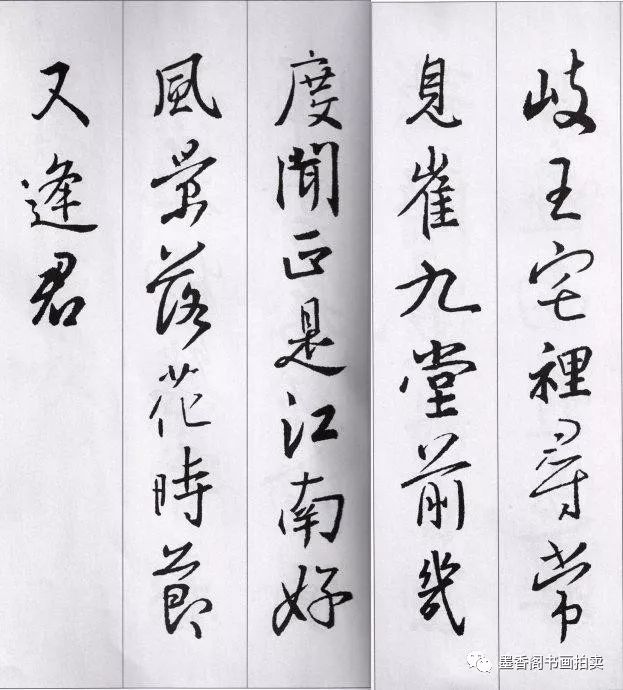 岐王宅裡尋常
見崔九堂前幾
度聞正是江南好
風景落花時節
又逢君
墨香阁书画拍卖